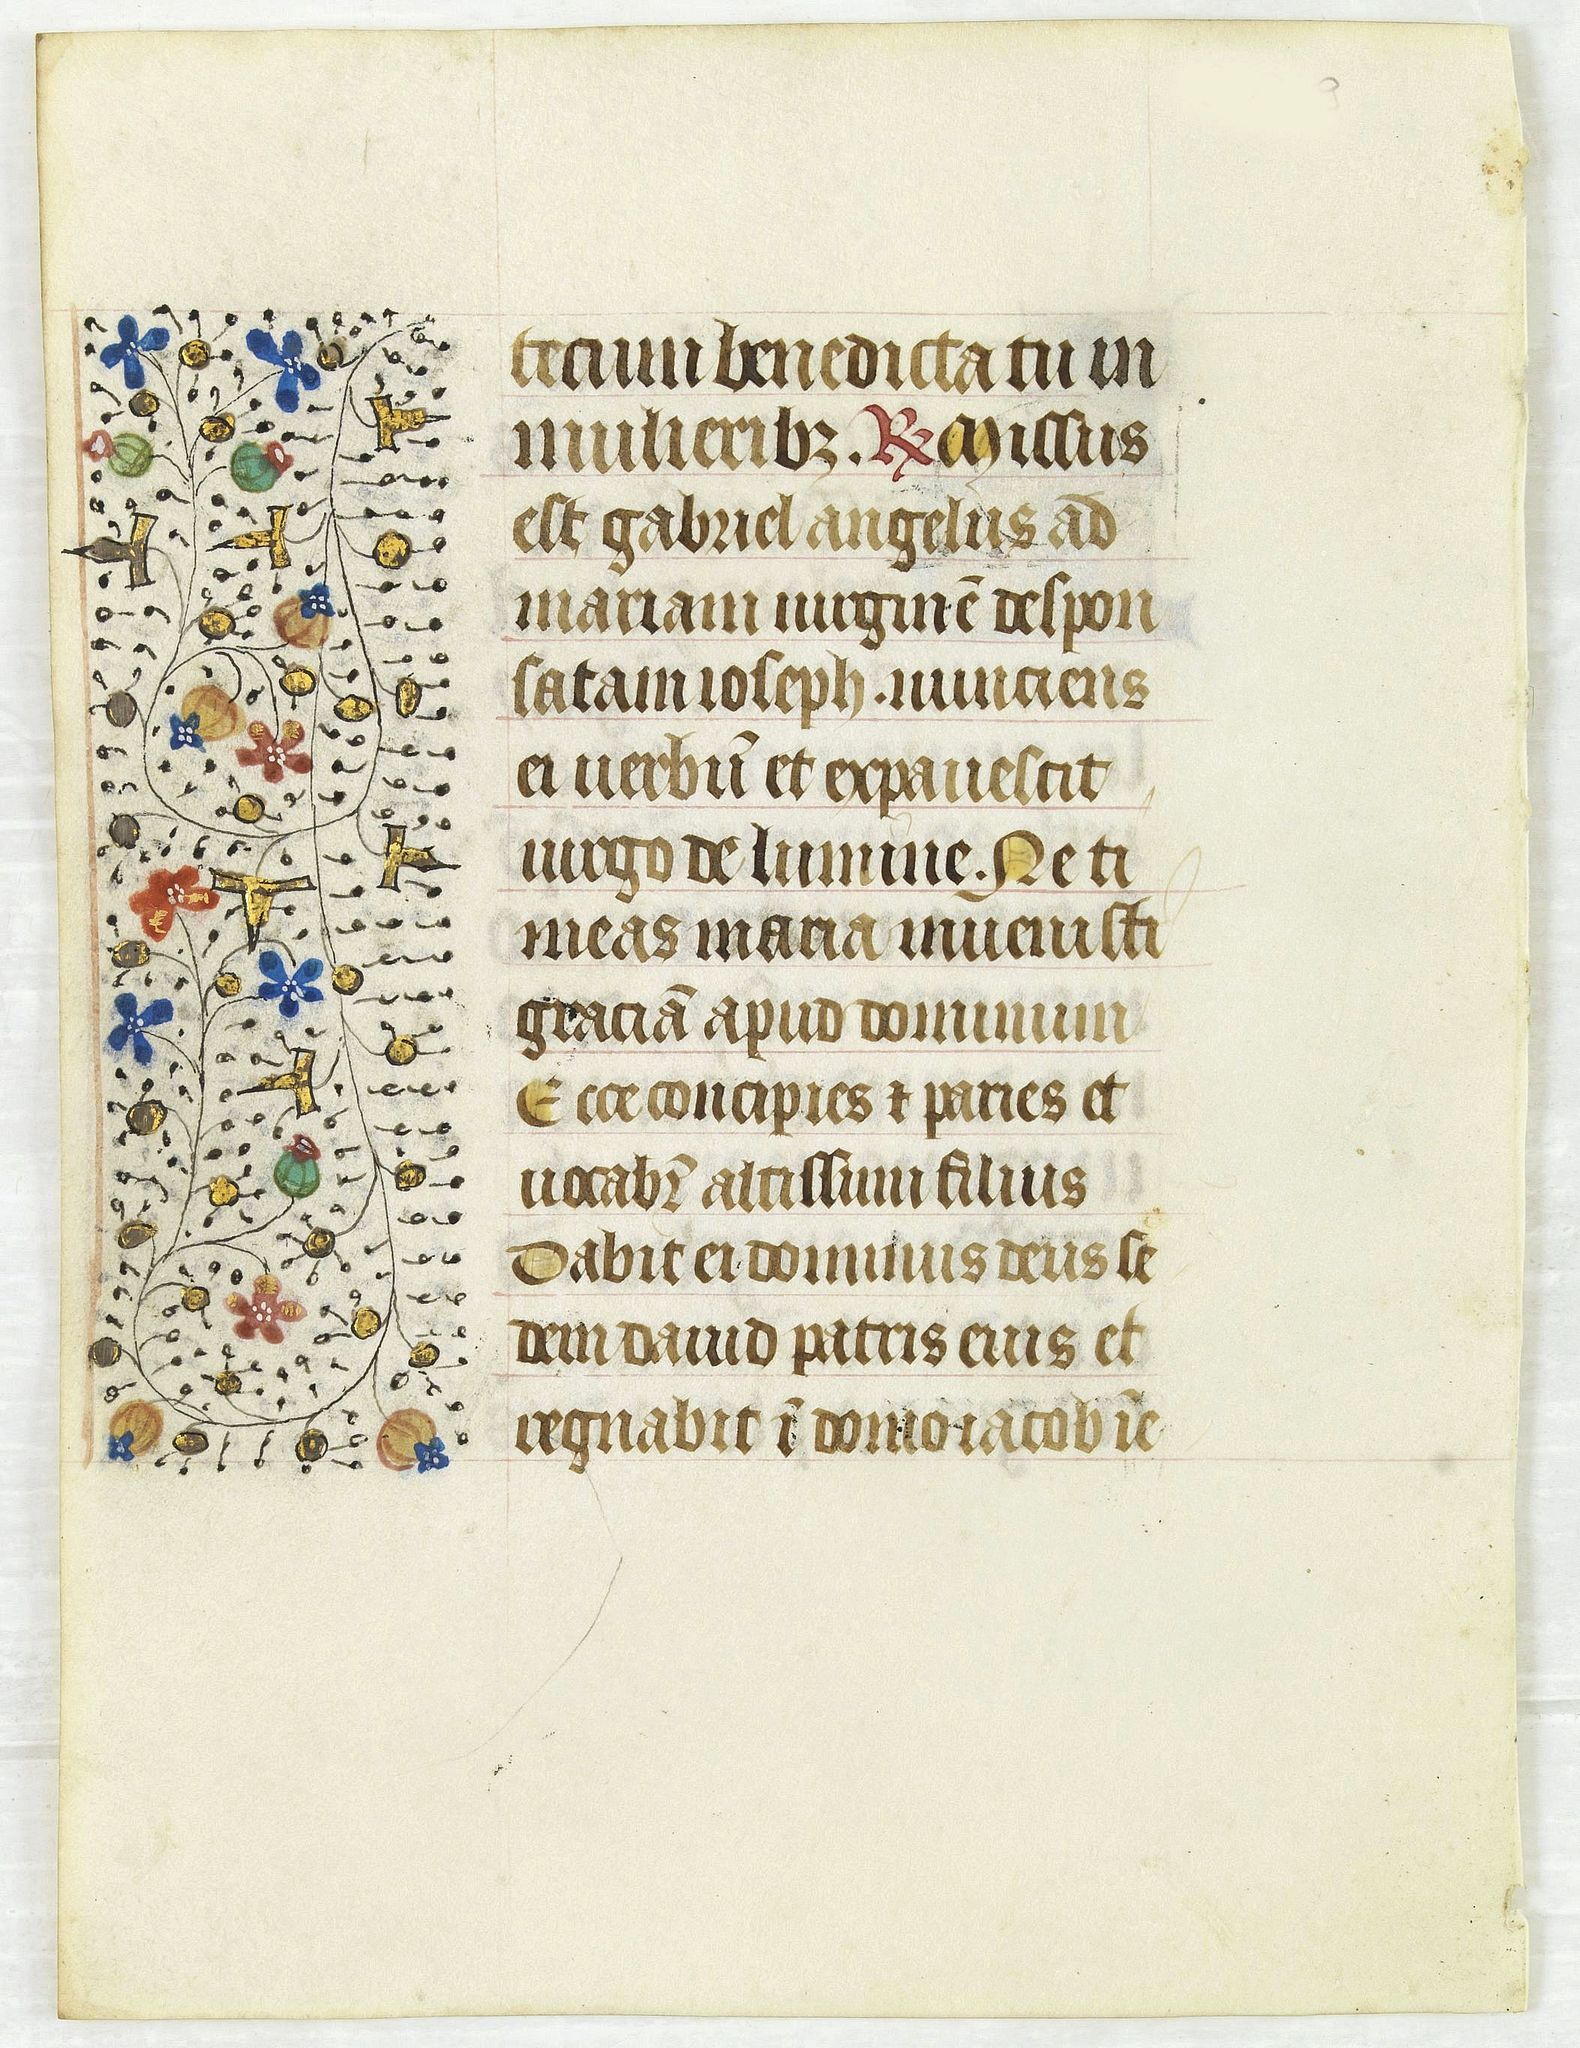 tecum benedicta tu in
mulieribꝫ. ℟ Missus
est gabriel angelus ad
mariam uirginē despon
satam ioseph. nunciens
ei uerbū et expauescit
uirgo de lumine. Ne ti
meas maria inuenisti
graciā apud dominum
Ecce concipies ⁊ paries et
uocabr̄ altissimi filius
Dabit ei dominus deus se
dem dauid patris eius et
regnabit ī domo iacob ī e